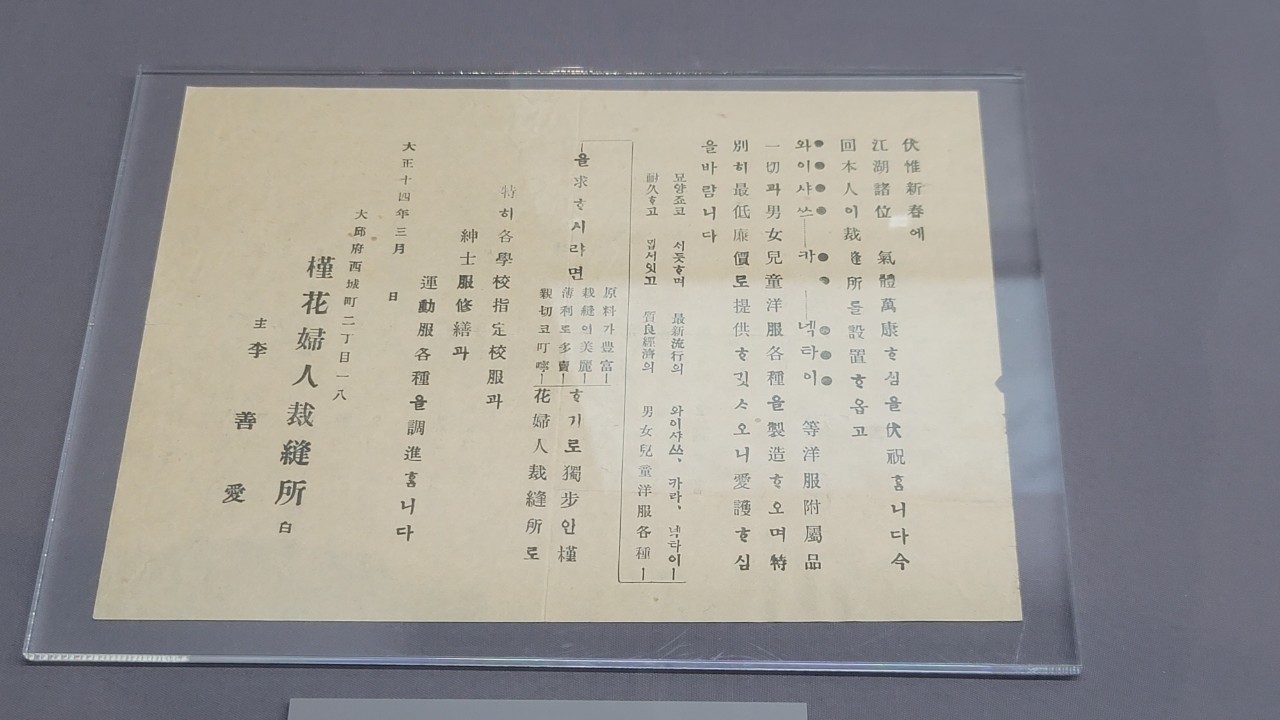 伏惟新春에
江湖諸位 氣體萬康ᄒᆞ심을伏祝홈니다今
回本人이裁縫所를設置ᄒᆞ옵고
와이샤쓰―카 ―넥타이 等洋服附屬品
一切과男女兒童洋服各種을製造ᄒᆞ오며特
別히最低廉價로提供ᄒᆞ깃ᄉᆞ오니愛護ᄒᆞ심
을바람니다
모양죠코 서굿ᄒᆞ며 最新流行의 와이샤쓰、카라、넥타이―
耐久ᄒᆞ고 밉서잇고 質良經濟의 男女兒童洋服各種―
―을求ᄒᆞ시랴면
原料가豊富―
裁縫의美麗―
薄利로多賣―
親切코叮嚀―
ᄒᆞ기로獨步인槿
花婦人裁縫所로
特히各學校指定校服과
紳士服修繕과
運動服各種을調進홈니다
大正十四年三月 日
大邱府西城町二丁目一八
槿花婦人裁縫所 白
主 李善愛